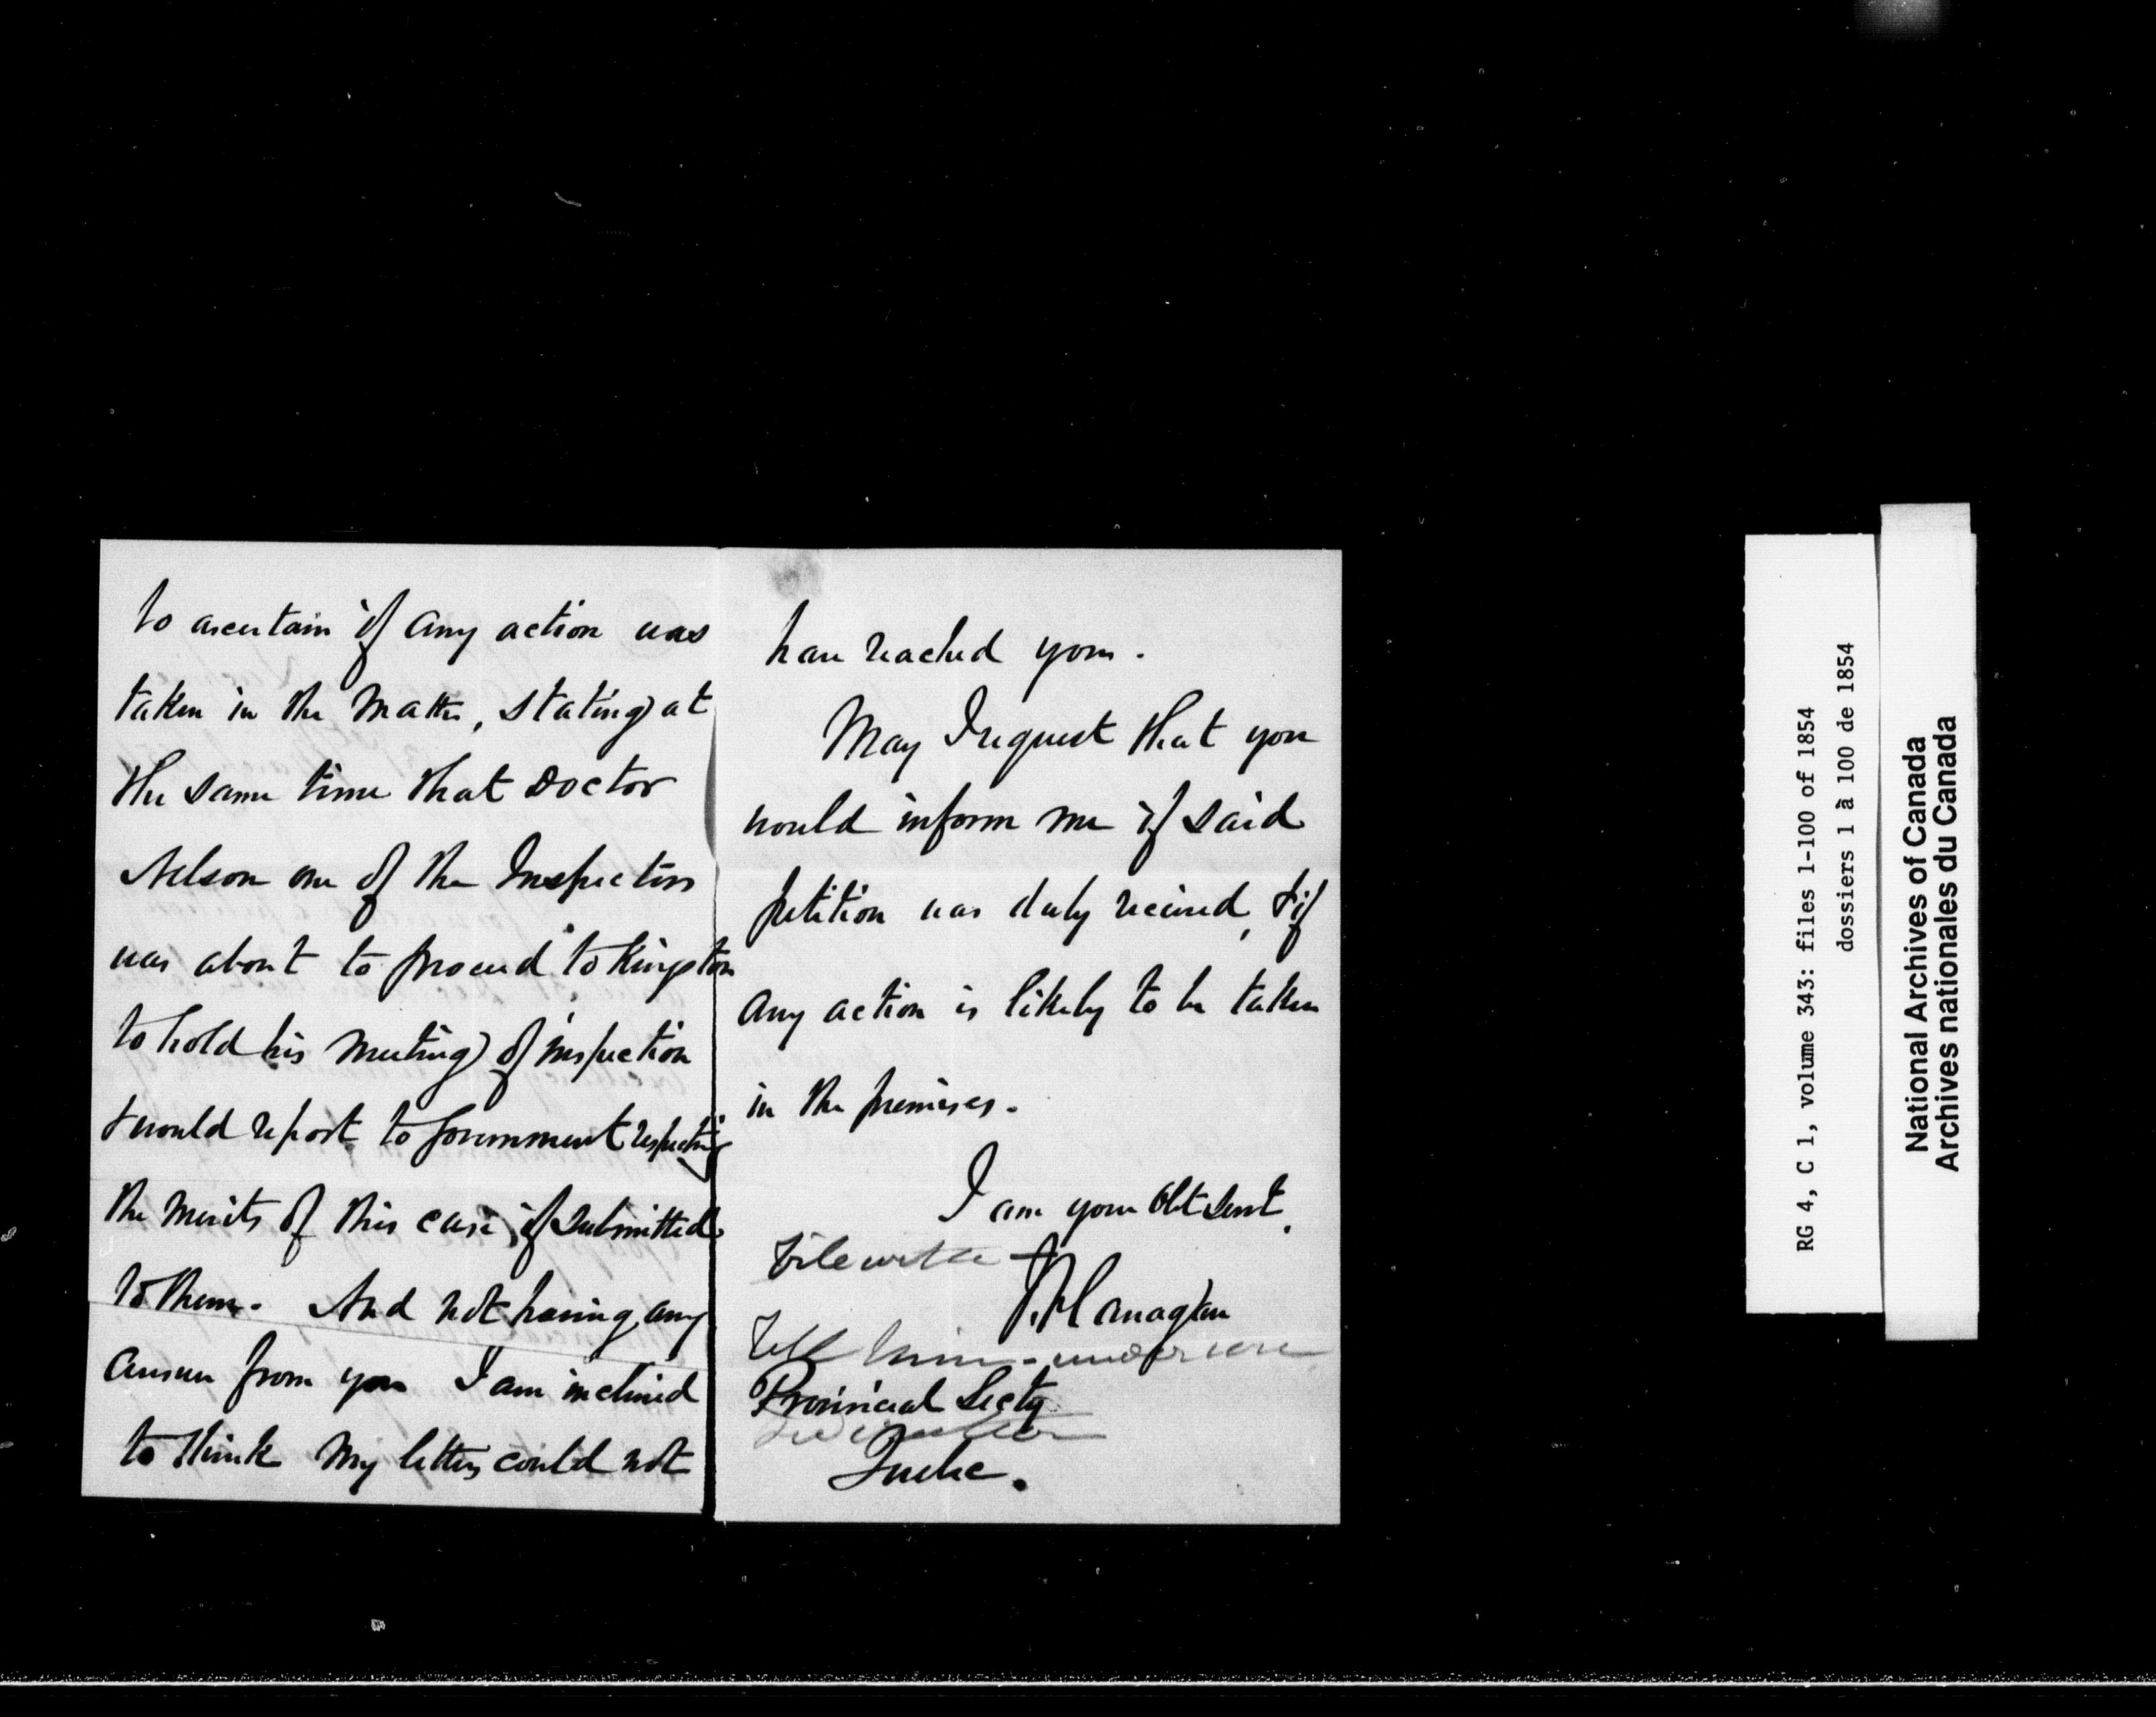 to ascertain if any action was
taken in the matter, stating at
the same time that Doctor
Nelson one of the Inspectors
was about to proceed to Kingston
to hold his meeting of inspection
& would report to Government respecting
the merits of this case, if submitted
to them. And not having any
answer from you I am inclined
to think my letters could not
have reached you.
May I request that you
would inform me if said
petition was duly received, & if
any action is likely to be taken
in the premises.
I am your Obt Servt.
File with
Flanagan
Tell him under
Provincial Secty
Quebec.
RG 4, C 1, volume 343: files 1-100 of 1854
dossiers 1 à 100 de 1854
National Archives of Canada
Archives nationales du Canada